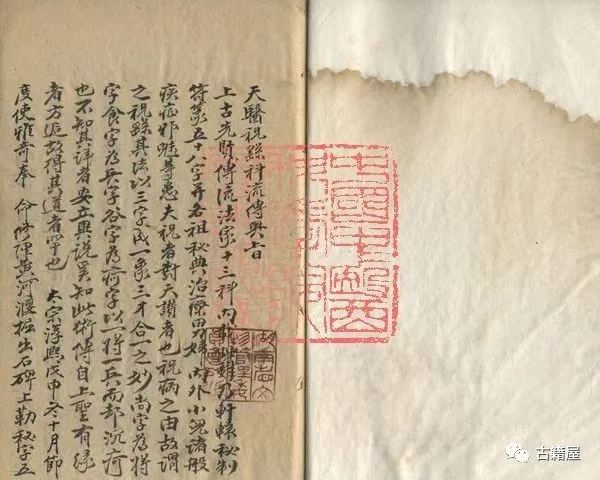 天醫祝繇科流傳奥旨
上古先賢傳流法家十三科內 乃軒轅秘制
符篆五十八字并右祖秘典治療男婦內外小児諸般
疾症邪魅等患夫祝者對天讃者也祝病之由故謂
之祝繇其法以三字成一象三才合一之妙尚字為將
字食字為兵字谷字為疴字以一將一兵而却沉疴
也不知其詳者妄立異説豈知此術傳自上聖有緣
者方遇故得其道者罕也 太宗淳熙戊申冬十月節
度使雒奇奉 命修理黄河渡掘出石碑上勒秘字五
古籍屋